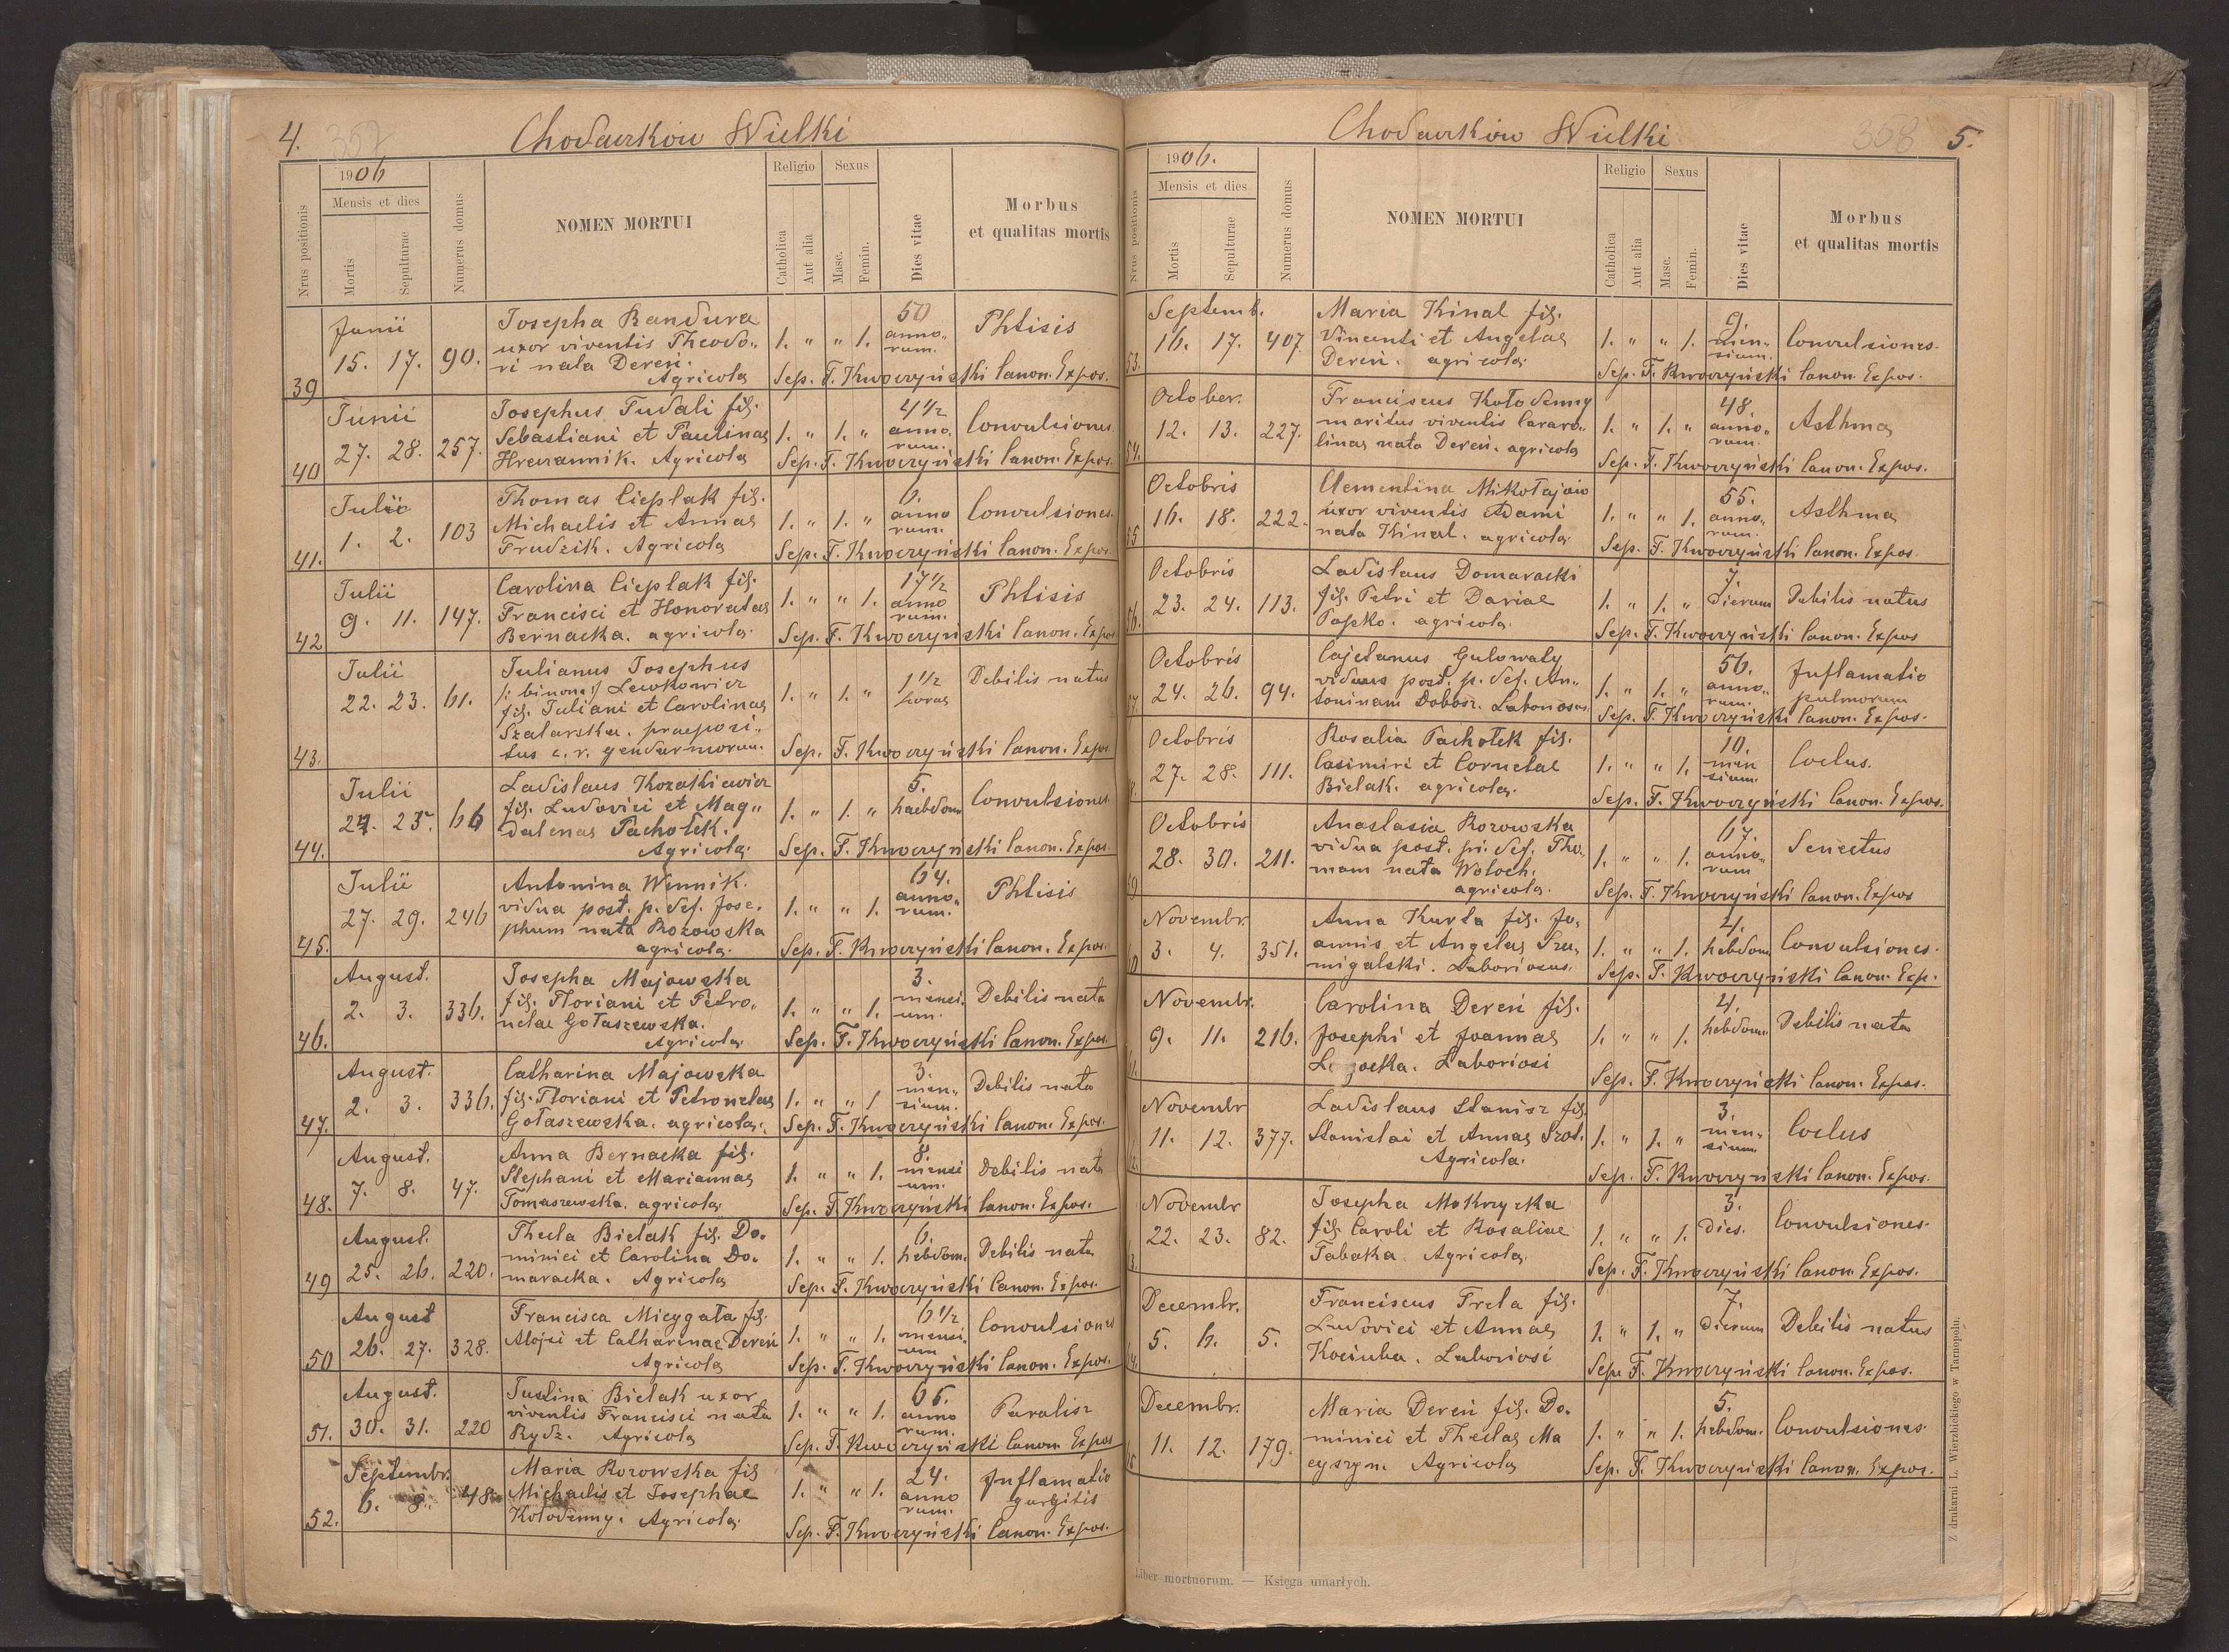 4.
357
Chodaczków Wielki
1906
Religio
Sexus
Nrus positionis
Mensis et dies
Mortis
Sepulturae
Numerus domus
NOMEN MORTUI
Catholica
Aut alia
Masc.
Femin.
Dies vitae
Morbus
et qualitas mortis
Junii
15. 17. 90.
39
Josepha Bandura
uxor viventis Theodo„
ri nata Dereń.
Agricola
1. „ „ 1.
50
anno„
rum.
Phtisis
Sep. F. Kwoczyński Canon. Expos.
Junii
27. 28. 257.
40
Josephus Tudali fil.
Sebastiani et Paulinae
Hreczannik. Agricola
1. „ 1. „
4 1/2
anno„
rum.
Convulsiones
Sep. F. Kwoczyński Canon. Expos.
Julii
1. 2. 103
41.
Thomas Cieplak fil.
Michaelis et Annae
Frudzik. Agricola
1. „ 1. „
6.
anno
rum.
Convulsiones.
Sep. F. Kwoczyński Canon. Expos.
Julii
9. 11. 147.
42
Carolina Cieplak fil.
Francisci et Honoratae
Bernacka. agricola.
1. „ „ 1.
17 1/2
anno
rum.
Phtisis
Sep. F. Kwoczyński Canon. Expos
Julii
22. 23. 61.
43.
Julianus Josephus
/: binom :/ Lewkowicz
fil. Juliani et Carolinae
Szatarska. praeposi„
tus c. r. gendarmorum.
1. „ 1. „
1 1/2
horae
Debilis natus
Sep. F. Kwoczyński Canon. Expos.
Julii
24. 25. 66
44.
Ladislaus Kozatkiewicz
fil. Ludovici et Mag„
dalenae Pachołek.
Agricola.
1. „ 1. „
5.
haebdom
Convulsiones.
Sep. F. Kwoczyński Canon. Expos.
Julii
27. 29. 246
45.
Antonina Winnik.
vidua post. p. def. Jose.
phum nata Rozowska
agricola.
1. „ „ 1.
64.
anno„
rum.
Phtisis
Sep. F. Kwoczyński Canon. Expos.
August.
2. 3. 336.
46.
Josepha Majowska
fil. Floriani et Petro„
nelae Gołaszewska.
Agricola
1. „ „ 1.
3.
mensi„
um.
Debilis nata
Sep. F. Kwoczyński Canon. Expos.
August.
2. 3. 336.
47.
Catharina Majowska
fil. Floriani et Petronelae
Gołaszewska. agricola.
1. „ „ 1
3.
men„
sium.
Debilis nata
Sep. F. Kwoczyński Canon. Expos.
August.
7. 8. 47.
48.
Anna Bernacka fil.
Stephani et Mariannae
Tomaszewska. agricola
1. „ „ 1.
8.
mensi
um.
Debilis nata
Sep. F. Kwoczyński Canon. Expos.
August.
25. 26. 220.
49
Thecla Bielak fil. Do.
minici et Carolina Do.
maracka. Agricola
1. „ „ 1.
6.
hebdom.
Debilis nata
Sep. F. Kwoczyński Canon. Expos.
August
26. 27. 328.
50
Francisca Micygała fil.
Alojsi et Catharinae Dereń
Agricola
1. „ „ 1.
6 1/2
mensi.
um
Convulsiones
Sep. F. Kwoczyński Canon. Expos.
August.
30. 31. 220
51.
Justina Bielak uxor
viventis Francisci nata
Rydz. Agricola
1. „ „ 1.
65.
anno
rum.
Paralis
Sep. F. Kwoczyński Canon. Expos
Septembr.
6. 8. 48
52.
Maria Rozowska fil
Michaelis et Josephae
Kołodzinny. Agricola.
1. „ „ 1.
24.
anno
rum.
Inflamatio
gurgitis
Sep. F. Kwoczyński Canon. Expos.
Chodaczków Wielki
358
5.
1906.
Religio
Sexus
Nrus positionis
Mensis et dies
Mortis
Sepulturae
Numerus domus
NOMEN MORTUI
Catholica
Aut alia
Masc.
Femin.
Dies vitae
Morbus
et qualitas mortis
Septemb.
16. 17. 407.
53.
Maria Kinal fil.
Vincenti et Angelae
Dereń. agricola.
1. „ „ 1.
9.
men„
sium.
Convulsiones.
Sep. F. Kwoczyński Canon. Expos.
October.
12. 13. 227.
54.
Franciscus Kołodzinny
maritus viventis Cararo„
linae nata Dereń. agricola
1. „ 1. „
48.
anno„
rum.
Asthma
Sep. F. Kwoczyński Canon. Expos.
Octobris
16. 18. 222.
55
Clementina Mikołajow
uxor viventis Adami
nata Kinal. agricola.
1. „ „ 1.
55.
anno„
rum.
Asthma
Sep. F. Kwoczyński Canon. Expos.
Octobris
23. 24. 113.
56.
Ladislaus Domaracki
fil. Petri et Dariae
Papko. agricola.
1. „ 1. „
7.
dierum
Debilis natus
Sep. F. Kwoczyński Canon. Expos
Octobris
24. 26. 94.
Cajetanus Gulowaty
viduus post. p. def. An„
toninam Dobosz. Laboriosus
1. „ 1. „
56.
anno„
rum.
Inflamatio
pulmorum
Sep. F. Kwoczyński Canon. Expos.
Octobris
27. 28. 111.
Rosalia Pachołek fil.
Casimiri et Cornelae
Bielak. agricola.
1. „ „ 1.
10.
men
sium.
Coclus.
Sep. F. Kwoczyński Canon. Expos.
Octobris
28. 30. 211.
Anastasia Rozowska
vidua post. pi. def. Tho„
mam nata Wołoch.
agricola.
1. „ „ 1.
67.
anno„
rum
Senectus
Sep. F. Kwoczyński Canon. Expos
Novembr.
3. 4. 351.
Anna Kurla fil. Jo„
annis et Angelae Szu„
migalski. Laboriosus.
1. „ „ 1.
4.
hebdom
Convulsiones.
Sep. F. Kwoczyński Canon. Exp.
Novembr.
9. 11. 216.
Carolina Dereń fil.
Josephi et Joannae
Laboriosi
1. „ „ 1.
4.
hebdom.
Debilis nata
Sep. F. Kwoczyński Canon. Expos.
Novembr
11. 12. 377.
Ladislaus Stanisz fil.
Stanislai et Annae Szot.
Agricola.
1. „ 1. „
3.
men„
sium
Coclus
Sep. F. Kwoczyński Canon. Expos.
Novembr
22. 23. 82.
Josepha Mokrzycka
fil. Caroli et Rosaliae
Tabaka. Agricola.
1. „ „ 1.
3.
dies.
Convulsiones.
Sep. F. Kwoczyński Canon. Expos.
Decembr.
5. 6. 5.
Franciscus Treta fil.
Ludovici et Annae
Kociuba. Laboriosi
1. „ 1. „
7.
dierum
Debilis natus
Sep. F. Kwoczyński Canon. Expos.
Decembr.
11. 12. 179.
Maria Dereń fil. Do.
minici et Theclae Ma
cyszyn. Agricola
1. „ „ 1.
5.
hebdom.
Convulsiones.
Sep. F. Kwoczyński Canon. Expos.
Liber mortuorum. — Księga umarłych.
Z drukarni L. Wierzbickiego w Tarnopolu.